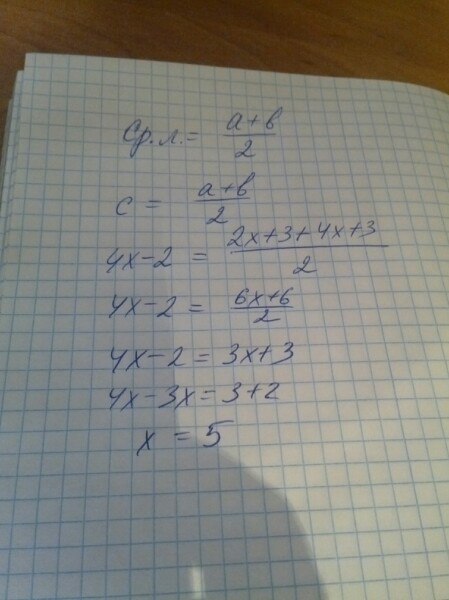 Ср.л.= a+b/2
c = a+b/2
4x-2 = 2x+3+4x+3/2
4x-2 = 6x+6/2
4x-2 = 3x+3
4x-3x=3+2
x = 5